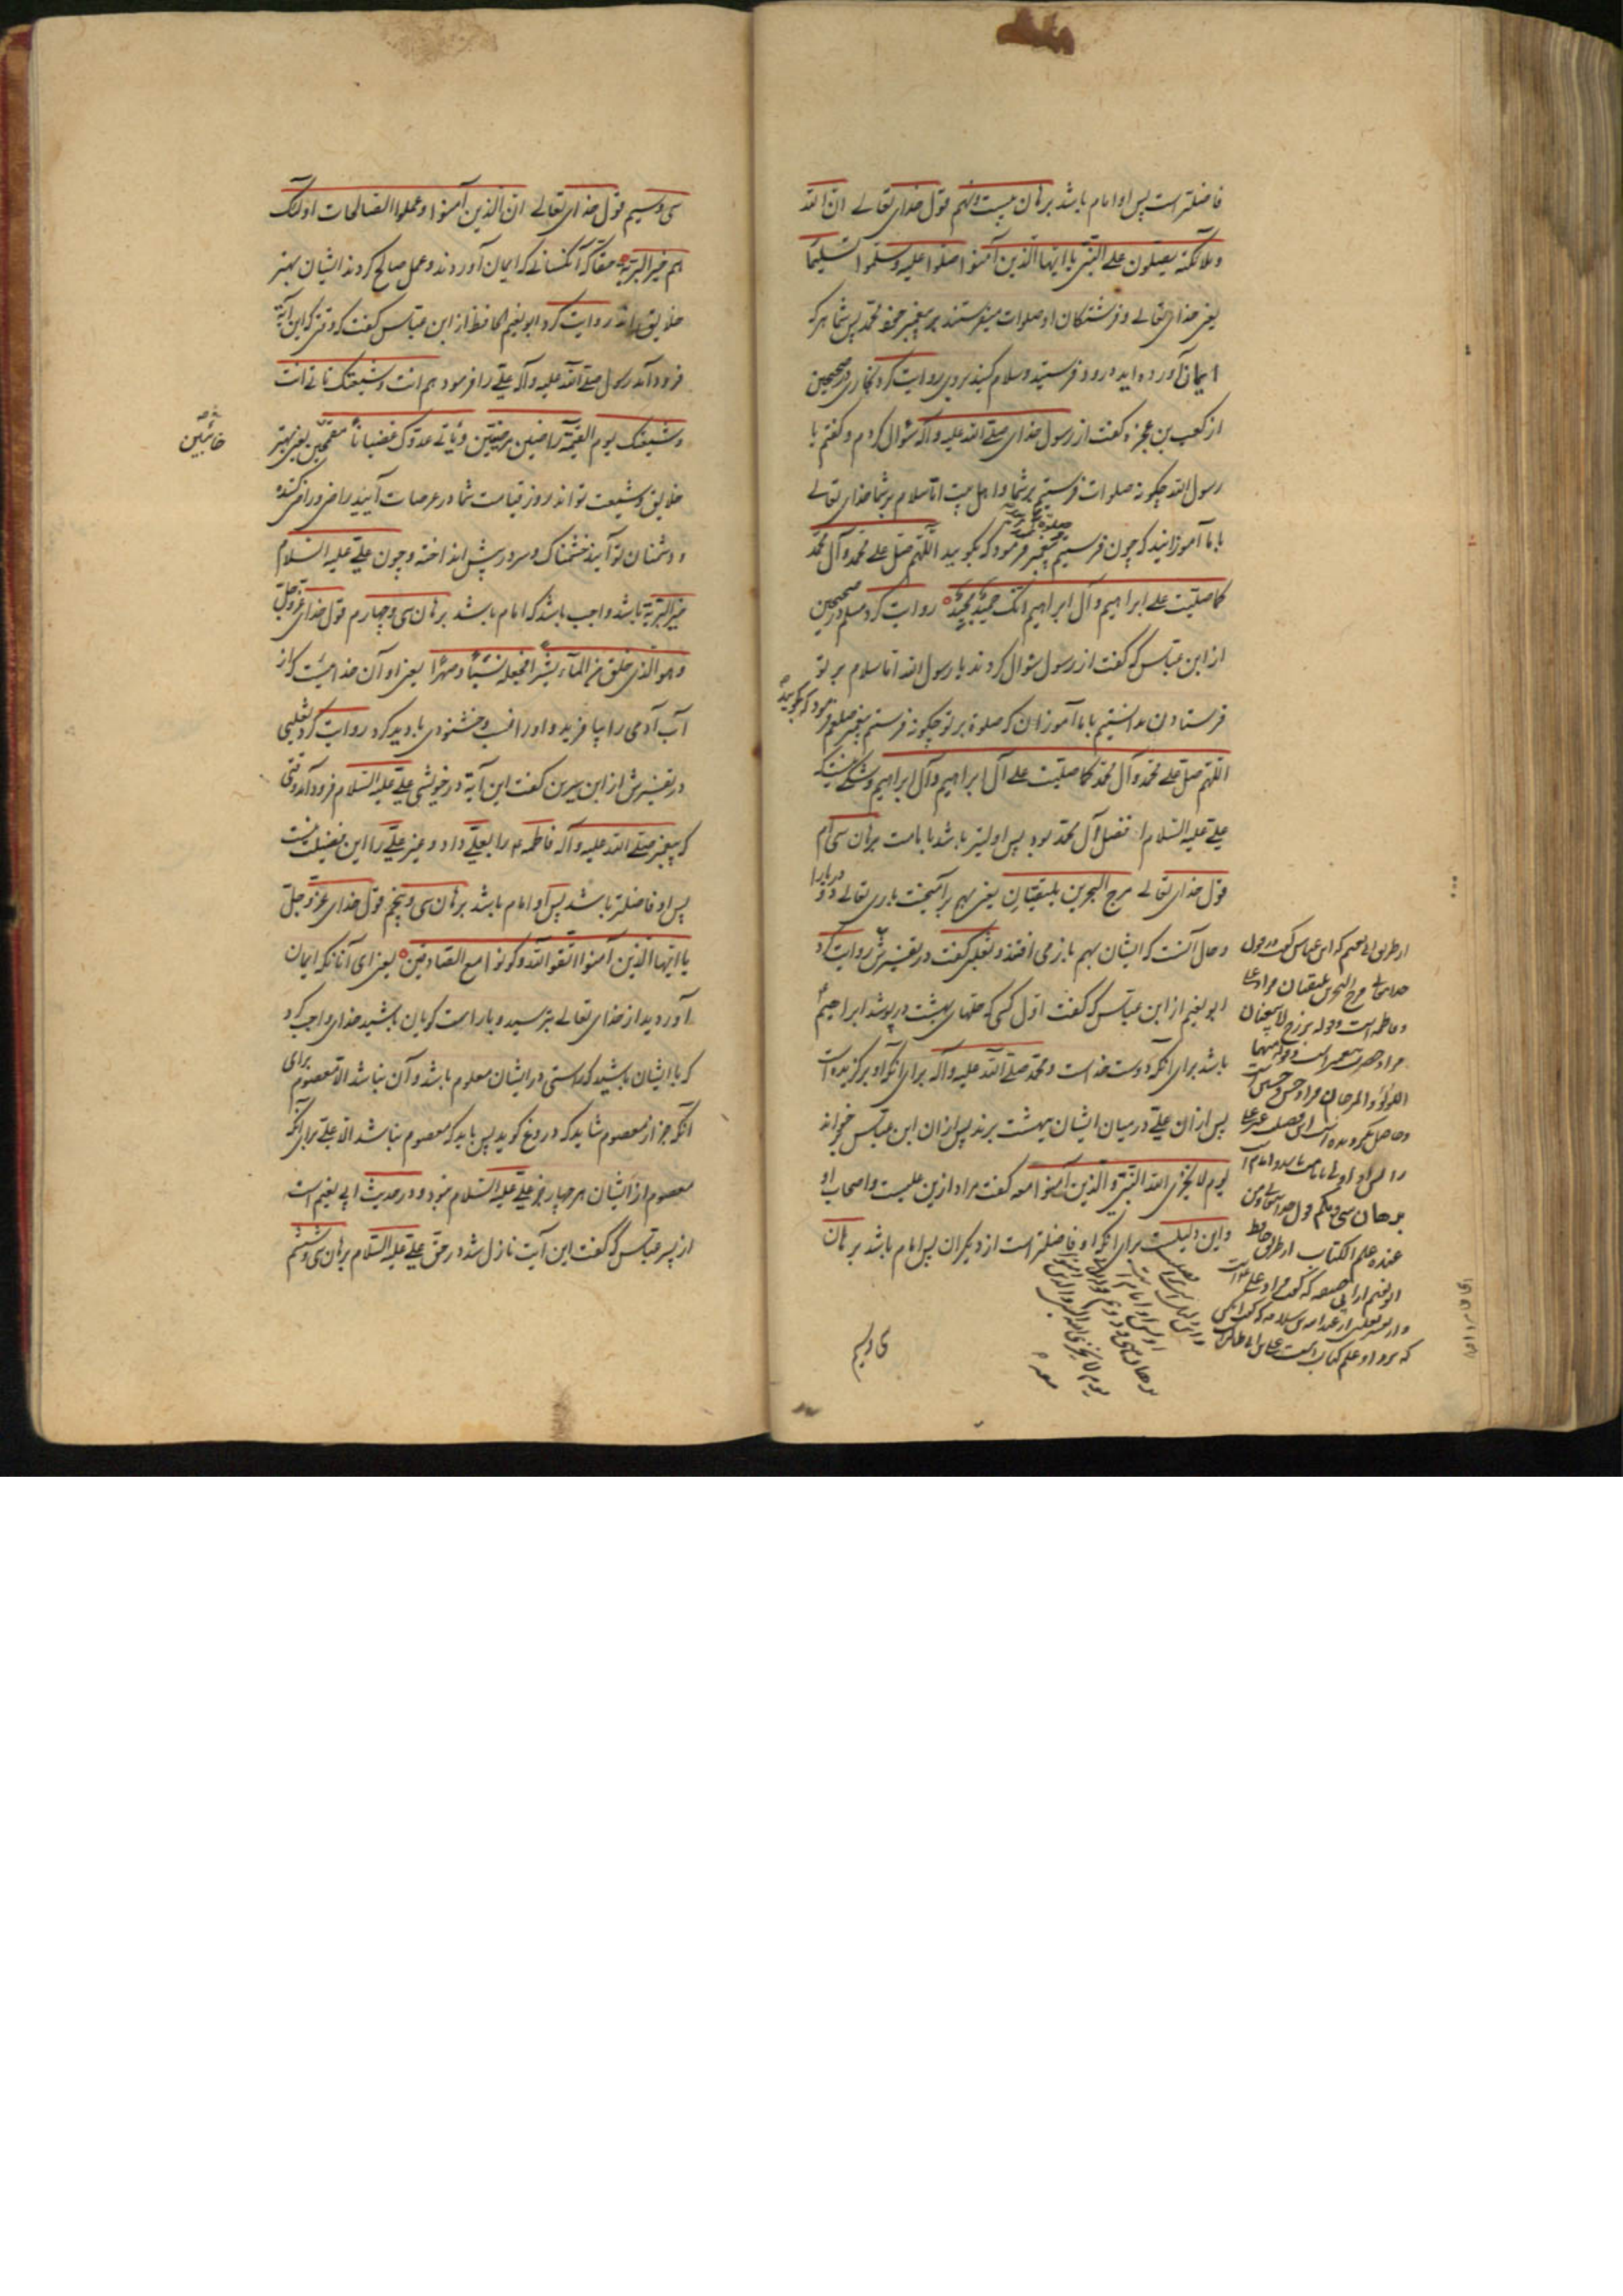 فاضلتر است پس او امام باشد برهان بیست و نهم قول خدای تعالی ان الله
وملائکته یصلون علی النبی یا ایها الذین آمنوا صلوا علیه وسلموا تسلیما
یعنی خدای تعالی و فرشتگان او صلوات میفرستند بر پیغمبر محمد پس شما هر که
ایمان آورده اید درود فرستید و سلام کنید بر وی روایت کرد بخاری در صحیحین
از کعب بن عجزه گفت از رسول خدای صلی الله علیه وآله سئوال کردم و گفتم یا
رسول الله چکونه صلوات فرستیم بر شما و اهل بیت اما سلام بر شما خدای تعالی
با ما آموزانید که چون فرستیم پیغمبر فرمود که بگویید اللهم صل علی محمد وآل محمد
کما صلیت علی ابراهیم وآل ابراهیم انک حمید مجید روایت کرد مسلم در صحیحین
از ابن عباس که گفت از رسول سئوال کردند یا رسول الله اما سلام بر تو
فرستادن دانستیم با ما آموزان که صلوة بر تو چکونه فرستیم پیغمبر صلعم فرمود که بگویید
اللهم صل علی محمد وآل محمد کما صلیت علی آل ابراهیم وآل ابراهیم و شکی نیست که
علی علیه السلام افضل آل محمد بود پس اولیتر باشد بامامت برهان سی ام
قول خدای تعالی مرج البحرین یلتقیان یعنی بهم برآمیخت باری تعالی دو دریا را
و حال آنست که ایشان بهم باز می افتند و ثعلبی گفت در تفسیرش روایت کرد
ابو نعیم از ابن عباس که گفت اول کسی که حلهای بهشت درپوشد ابراهیم
باشد برای آنکه دوست خداست و محمد صلی الله علیه وآله برای آنکه او برگزیده است
پس از ان علی در میان ایشان ببهشت برند پس از ان ابن عباس خواند
یوم لا یخزی الله النبی والذین آمنوا معه گفت مراد ازین علیست و اصحاب او
و این دلیلست برای آنکه او فاضلتر است از دیگران پس امام باشد برهان
سی و سیم
از طریق ابی نعیم که ابن عباس گفت در قول
خدایتعالی مرج البحرین یلتقیان مراد علی
و فاطمه است وقوله برزخ لا یبغیان
مراد حضرت پیغمبر است وقوله منهما
اللؤلؤ والمرجان مراد حسن و حسین است
برهان سی و یکم قول خدایتعالی ومن
عنده علم الکتاب از طریق حافظ
ابو نعیم
سی و سیم قول خدای تعالی ان الذین آمنوا وعملوا الصالحات اولئک
هم خیر البریة حقا که آنکسانی که ایمان آوردند و عمل صالح کردند ایشان بهتر
خلایق اند روایت کرد ابو نعیم الحافظ از ابن عباس گفت که وقتی که این آیة
فرود آمد رسول صلی الله علیه وآله علی را فرمود هم انت وشیعتک تاتی انت
وشیعتک یوم القیمة راضین مرضیین ویأتی عدوک غضباناً مقمحین یعنی بهتر
خائبین
خلایق و شیعت تو اند روز قیامت شما در عرصات آیید راضی و راضی کننده
و دشمنان تو آیند خشمناک و سر در پیش انداخته و چون علی علیه السلام
خیر البریة باشد واجب باشد که امام باشد برهان سی و چهارم قول خدای عزوجل
وهو الذی خلق من المآء بشراً فجعله نسباً وصهراً یعنی او آن خداییست که از
آب آدمی را بیافرید و او را نسب و خشنودی بادید کرد روایت کرد ثعلبی
در تفسیرش از ابن سیرین گفت این آیة در خویشی علی علیه السلام فرود آمد وقتی
که پیغمبر صلی الله علیه وآله فاطمه را بعلی داد و غیر علی را این فضیلت نیست
پس او فاضلتر باشد پس او امام باشد برهان سی و پنجم قول خدای عزوجل
یا ایها الذین آمنوا اتقوا الله وکونوا مع الصادقین یعنی ای آنانکه ایمان
آوردید از خدای تعالی بترسید و با راست گویان باشید خدای واجب کرد
که با ایشان باشید که راستی در ایشان معلوم باشد و آن نباشد الا معصوم برای
آنکه جز از معصوم شاید که دروغ گوید پس باید که معصوم نباشد الا علی برای آنکه
معصوم از ایشان هر چهار جز علی علیه السلام نبود و در حدیث ابی نعیم است
از پسر عباس که گفت این آیت نازل شد در حق علی علیه السلام برهان سی و ششم